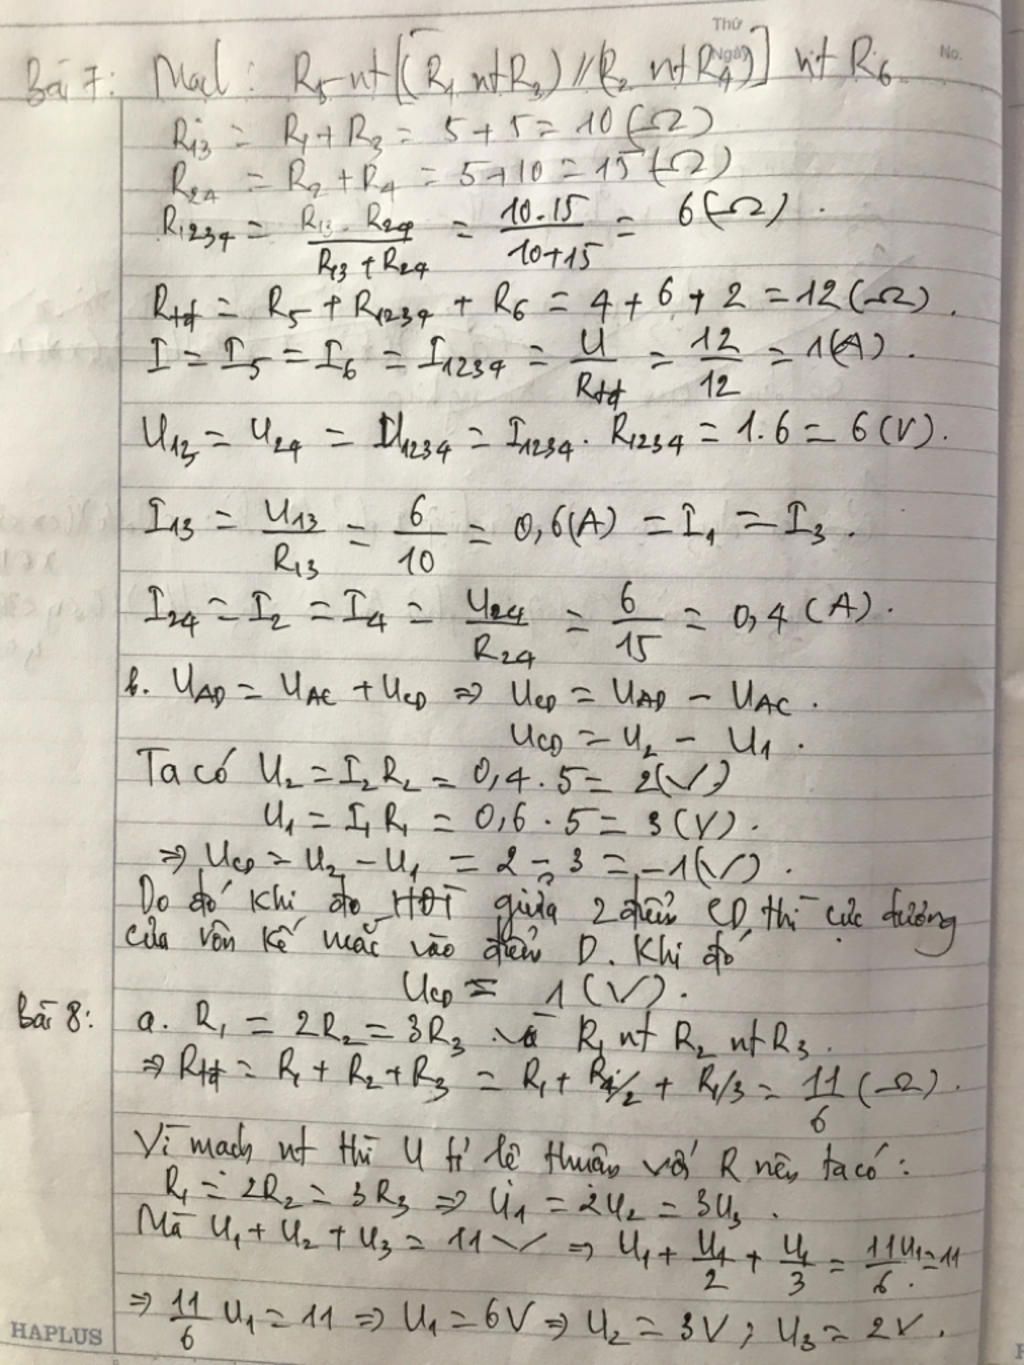 Thứ
Ngày
No.
Bài 7: Mạch: R5 nt [(R1 nt R3) // (R2 nt R4)] nt R6
R13 = R1 + R3 = 5 + 5 = 10 (Ω)
R24 = R2 + R4 = 5 + 10 = 15 (Ω)
R1234 = R13 . R24 / R13 + R24 = 10.15 / 10+15 = 6 (Ω).
Rtđ = R5 + R1234 + R6 = 4 + 6 + 2 = 12 (Ω).
I = I5 = I6 = I1234 = U/Rtđ = 12/12 = 1(A).
U13 = U24 = U1234 = I1234 . R1234 = 1.6 = 6 (V).
I13 = U13/R13 = 6/10 = 0,6(A) = I1 = I3.
I24 = I2 = I4 = U24/R24 = 6/15 = 0,4 (A).
b. UAD = UAC + UCD => UCD = UAD - UAC.
UCD = U2 - U1.
Ta có U2 = I2 R2 = 0,4 . 5 = 2(V)
U1 = I1 R1 = 0,6 . 5 = 3 (V).
=> UCD = U2 - U1 = 2 - 3 = -1(V).
Do đó khi đo HĐT giữa 2 điểm CD, thì cực dương
của vôn kế mắc vào điểm D. Khi đó
UCD = 1 (V).
Bài 8: a. R1 = 2R2 = 3R3 và R1 nt R2 nt R3.
=> Rtđ = R1 + R2 + R3 = R1 + R1/2 + R1/3 = 11/6 (Ω).
Vì mạch nt thì U tỉ lệ thuận với R nên ta có:
R1 = 2R2 = 3R3 => U1 = 2U2 = 3U3.
Mà U1 + U2 + U3 = 11V => U1 + U1/2 + U1/3 = 11U1/6 = 11
=> 11/6 U1 = 11 => U1 = 6V => U2 = 3V; U3 = 2V.
HAPLUS